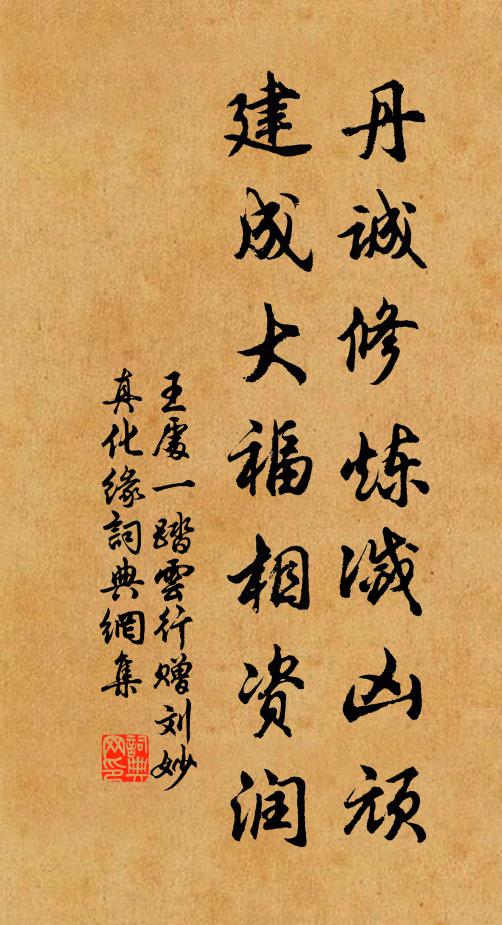 丹诚修炼减凶顽
建成大福相资润
王處一踏雲行赠刘妙
真化缘詞典網集
詞典网印